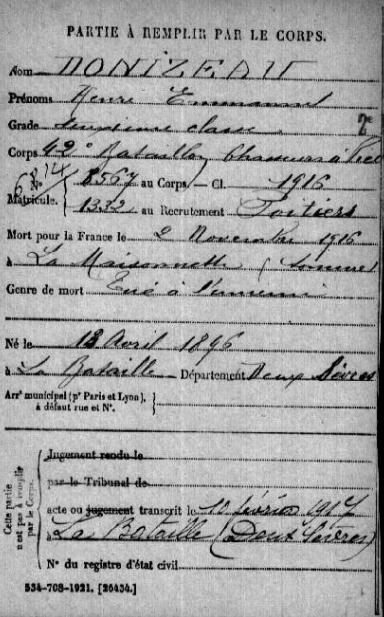 PARTIE À REMPLIR PAR LE CORPS.
Nom DONIZEAU
Prénoms Henri Emmanuel
Grade deuxième classe 2e
Corps 42e Bataillon Chasseurs à Pied
No 8567 au Corps. — Cl. 1916
Matricule. 1332 au Recrutement Poitiers
Mort pour la France le 2 Novembre 1916
à La Maisonnette (Somme)
Genre de mort Tué à l'ennemi
Né le 13 Avril 1896
à La Bataille Département Deux Sèvres
Arrt municipal (pr Paris et Lyon), à défaut rue et No.
Cette partie n'est pas à remplir par le Corps.
Jugement rendu le
par le Tribunal de
acte ou jugement transcrit le février 1917
à La Bataille (Deux Sèvres)
No du registre d'état civil
534-708-1921. [26434.]